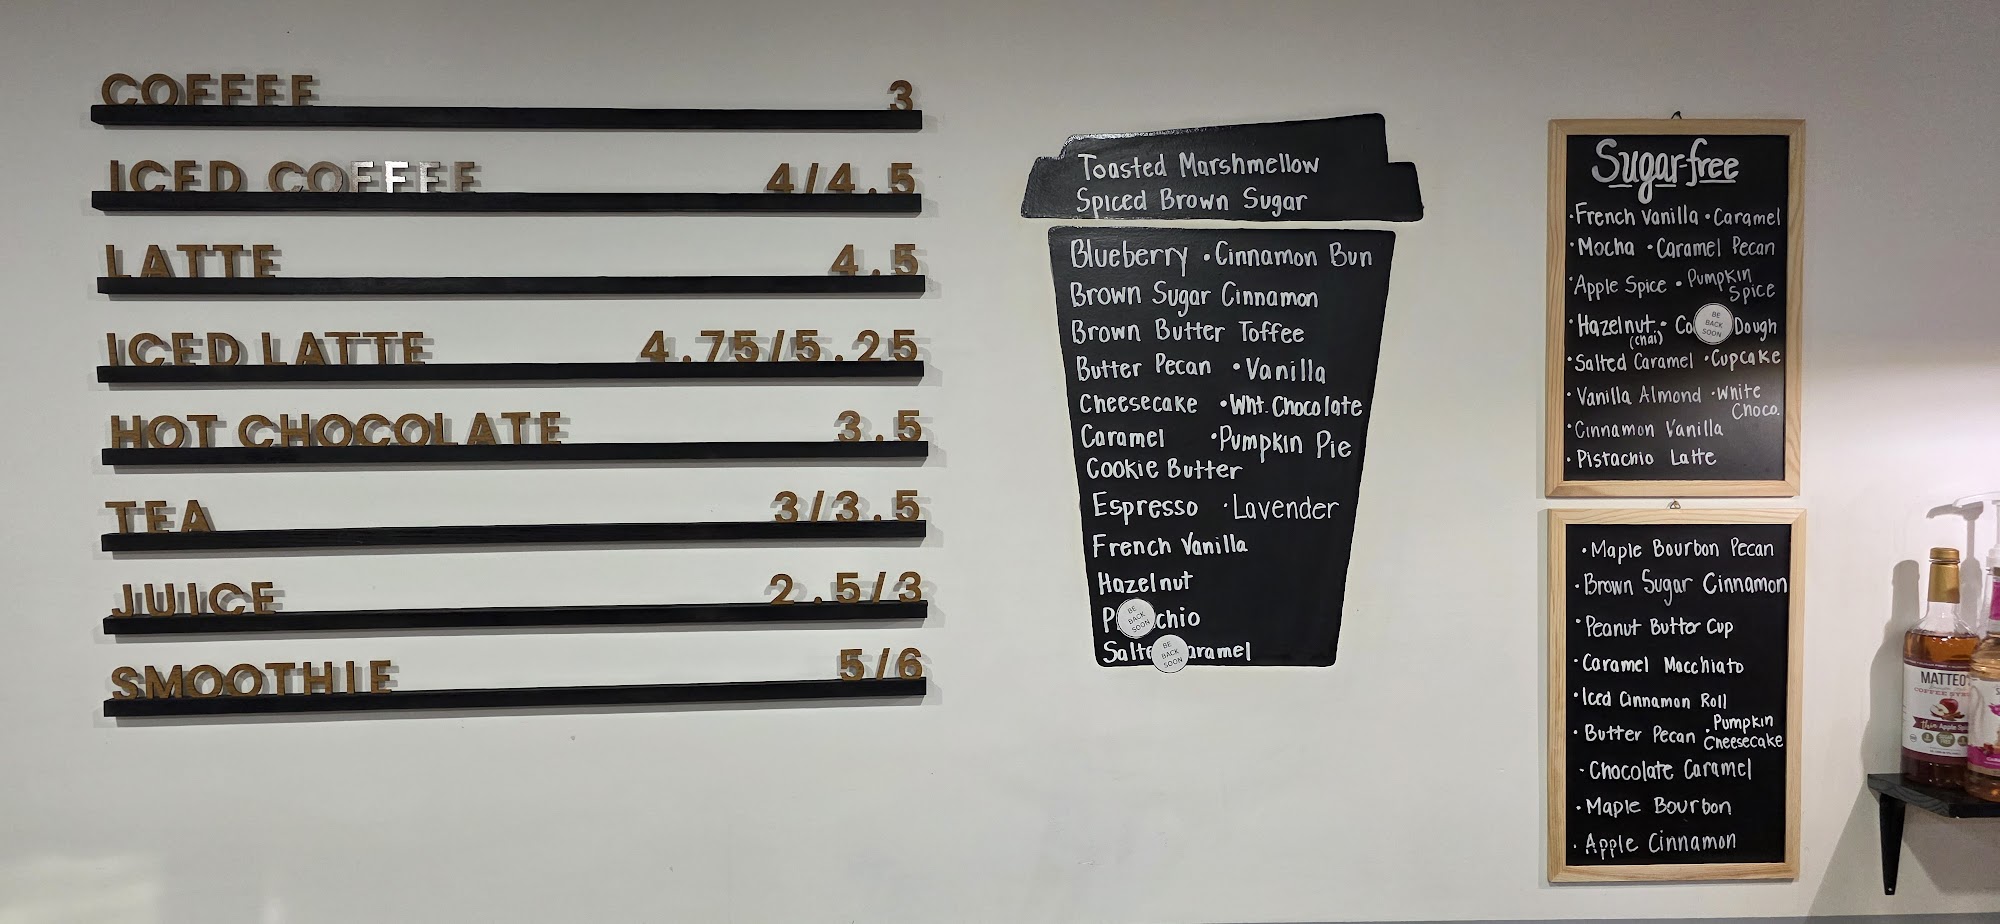 COFFEE 3
ICED COFFEE 4/4.5
LATTE 4.5
ICED LATTE 4.75/5.25
HOT CHOCOLATE 3.5
TEA 3/3.5
JUICE 2.5/3
SMOOTHIE 5/6
Toasted Marshmellow
Spiced Brown Sugar
Blueberry • Cinnamon Bun
Brown Sugar Cinnamon
Brown Butter Toffee
Butter Pecan • Vanilla
Cheesecake • Wht. Chocolate
Caramel • Pumpkin Pie
Cookie Butter
Espresso • Lavender
French Vanilla
Hazelnut
P chio
BE
BACK
SOON
Salte aramel
BE
BACK
SOON
Sugar-free
• French Vanilla • Caramel
• Mocha • Caramel Pecan
• Apple Spice • Pumpkin
Spice
• Hazelnut • Co Dough
(chai)
BE
BACK
SOON
• Salted Caramel • Cupcake
• Vanilla Almond • White
Choco.
• Cinnamon Vanilla
• Pistachio Latte
• Maple Bourbon Pecan
• Brown Sugar Cinnamon
• Peanut Butter Cup
• Caramel Macchiato
• Iced Cinnamon Roll
• Butter Pecan • Pumpkin
Cheesecake
• Chocolate Caramel
• Maple Bourbon
• Apple Cinnamon
MATTEO'
COFFEE SY
thin Apple